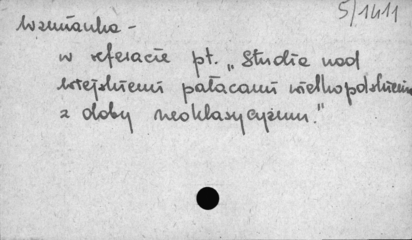 5/1411
Wzmianka -
w referacie pt. „Studia nad
wiejskiemi pałacami wielkopolskiemi
z doby neoklasycyzmu."